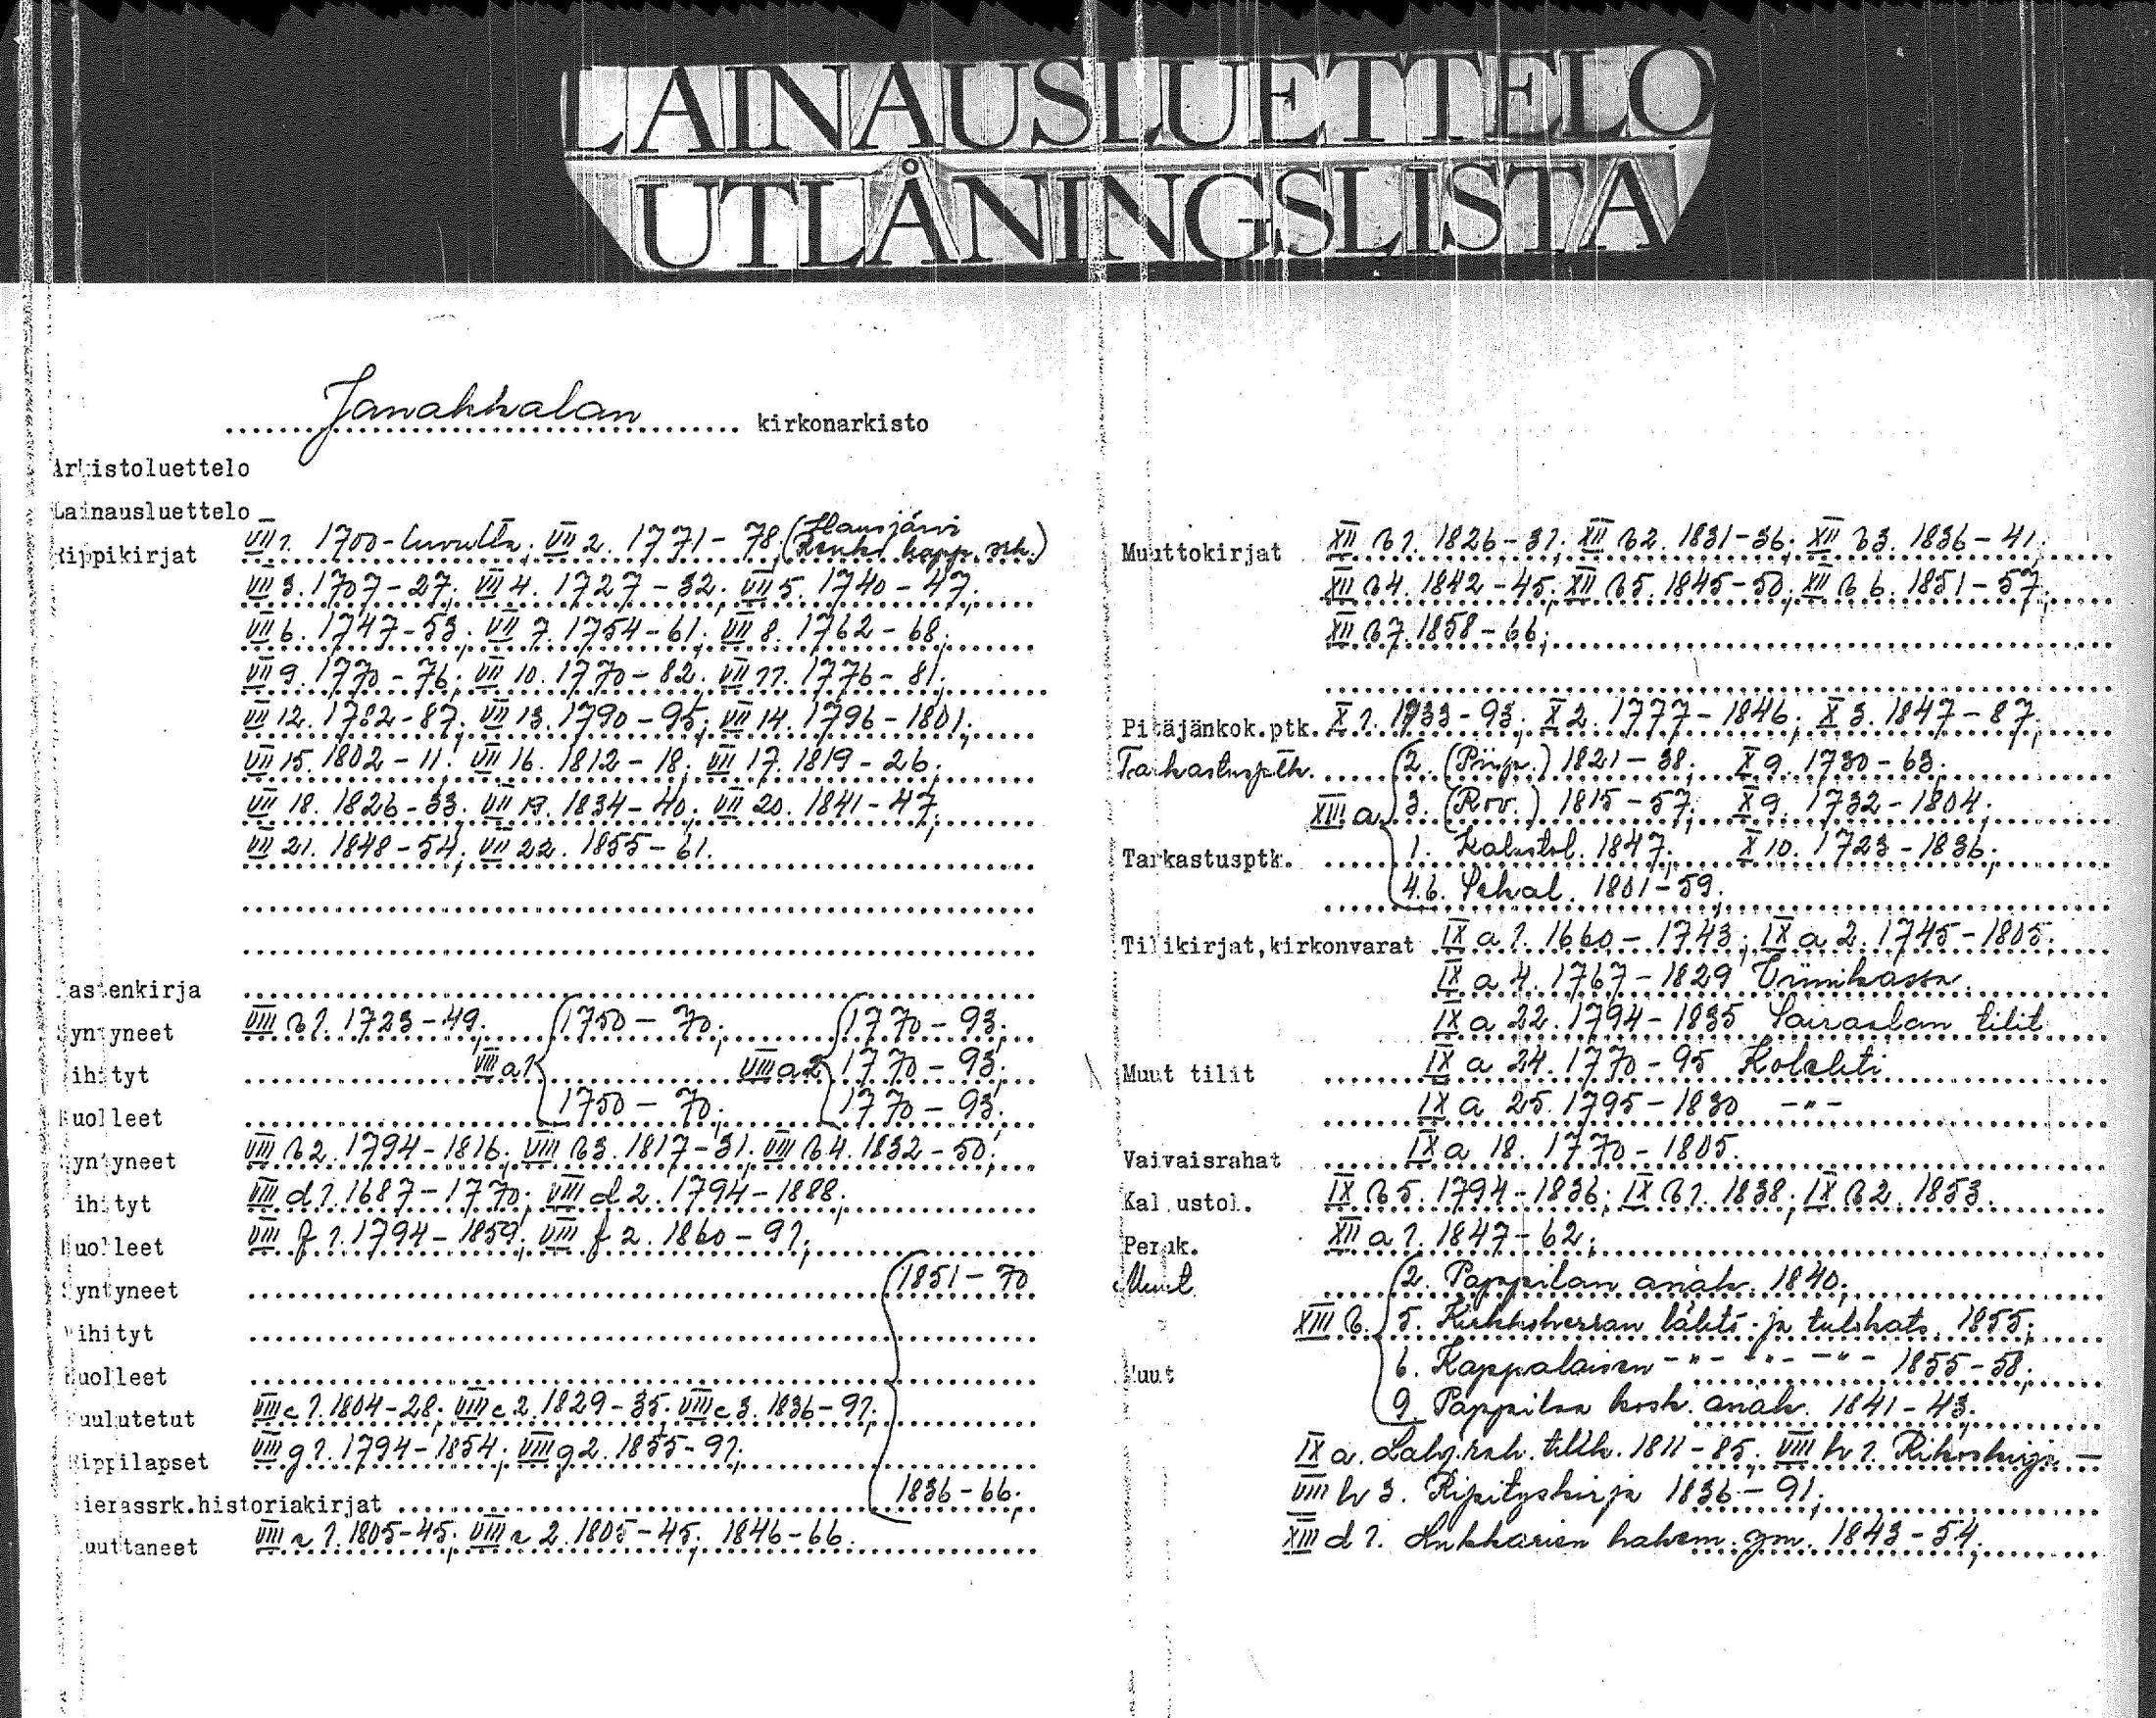 LAINAUSLUETTELO
UTLÅNINGSLISTA
Janakkalan kirkonarkisto
Arkistoluettelo
Lainausluettelo
Rippikirjat VII 1. 1700-luvulta; VII 2. 1771-78; (Hausjärvi Renko kapp. srk.)
VII 3. 1707-27; VII 4. 1727-32; VII 5. 1740-47;
VII 6. 1747-53; VII 7. 1754-61; VII 8. 1762-68;
VII 9. 1770-76; VII 10. 1770-82; VII 11. 1776-81;
VII 12. 1782-87; VII 13. 1790-95; VII 14. 1796-1801;
VII 15. 1802-11; VII 16. 1812-18; VII 17. 1819-26;
VII 18. 1826-33; VII 19. 1834-40; VII 20. 1841-47;
VII 21. 1848-54; VII 22. 1855-61.
Lastenkirja
Syntyneet VIII B1. 1723-49. 1750-70; 1770-93;
Vihityt VIII a1 VIII a2 1770-93;
Kuolleet 1750-70; 1770-93.
Syntyneet VIII B2. 1794-1816; VIII B3. 1817-31; VIII B4. 1832-50;
Vihityt VIII d1. 1687-1770; VIII d2. 1794-1888;
Kuolleet VIII f1. 1794-1859; VIII f2. 1860-91;
Syntyneet 1851-70
Vihityt
Kuolleet
Kuulutetut VIII c1. 1804-28; VIII c2. 1829-35; VIII c3. 1836-91;
Rippilapset VIII g1. 1794-1854; VIII g2. 1855-91;
Vierassrk.historiakirjat 1836-66;
Muuttaneet 1. 1805-45; 2. 1805-45; 1846-66.
Muuttokirjat XII B1. 1826-31; XII B2. 1831-36; XII B3. 1836-41;
XII B4. 1842-45; XII B5. 1845-50; XII B6. 1851-57;
XII B7. 1858-66;
Pitäjänkok.ptk. X 1. 1733-93; X 2. 1777-1846; X 3. 1847-87;
Tarkastusptk. 2. (Piisp.) 1821-38; X 9. 1730-63;
XIII a 3. (Rov.) 1815-57; X 9. 1732-1804;
Tarkastusptk. 1. Kalustol. 1847; X 10. 1723-1836;
4.6. Sekal. 1801-59.
Tilikirjat,kirkonvarat IX a 1. 1660-1743; IX a 2. 1745-1805;
IX a 4. 1767-1829 Viinikassa.
IX a 22. 1794-1835 Sairaalan tilit
Muut tilit IX a 24. 1770-95 Kolehti
IX a 25. 1795-1830 -"-
Vaivaisrahat IX a 18. 1770-1805.
Kalustol. IX B5. 1794-1836; IX B1. 1838; IX B2. 1853.
Peruk. XII a 1. 1847-62;
Muut 2. Pappilan asiak. 1840;
XIII B. 5. Kirkkoherran lähts- ja tulokats. 1855;
Muut 6. Kappalaisen -"- -"- -"- 1855-58;
9. Pappilaa kosk. asiak. 1841-43.
IX a. tilik. 1811-85; VIII h 1. Rikoskirja -
VIII h 3. Ripityskirja 1836-91;
XIII d 1. 1843-54;